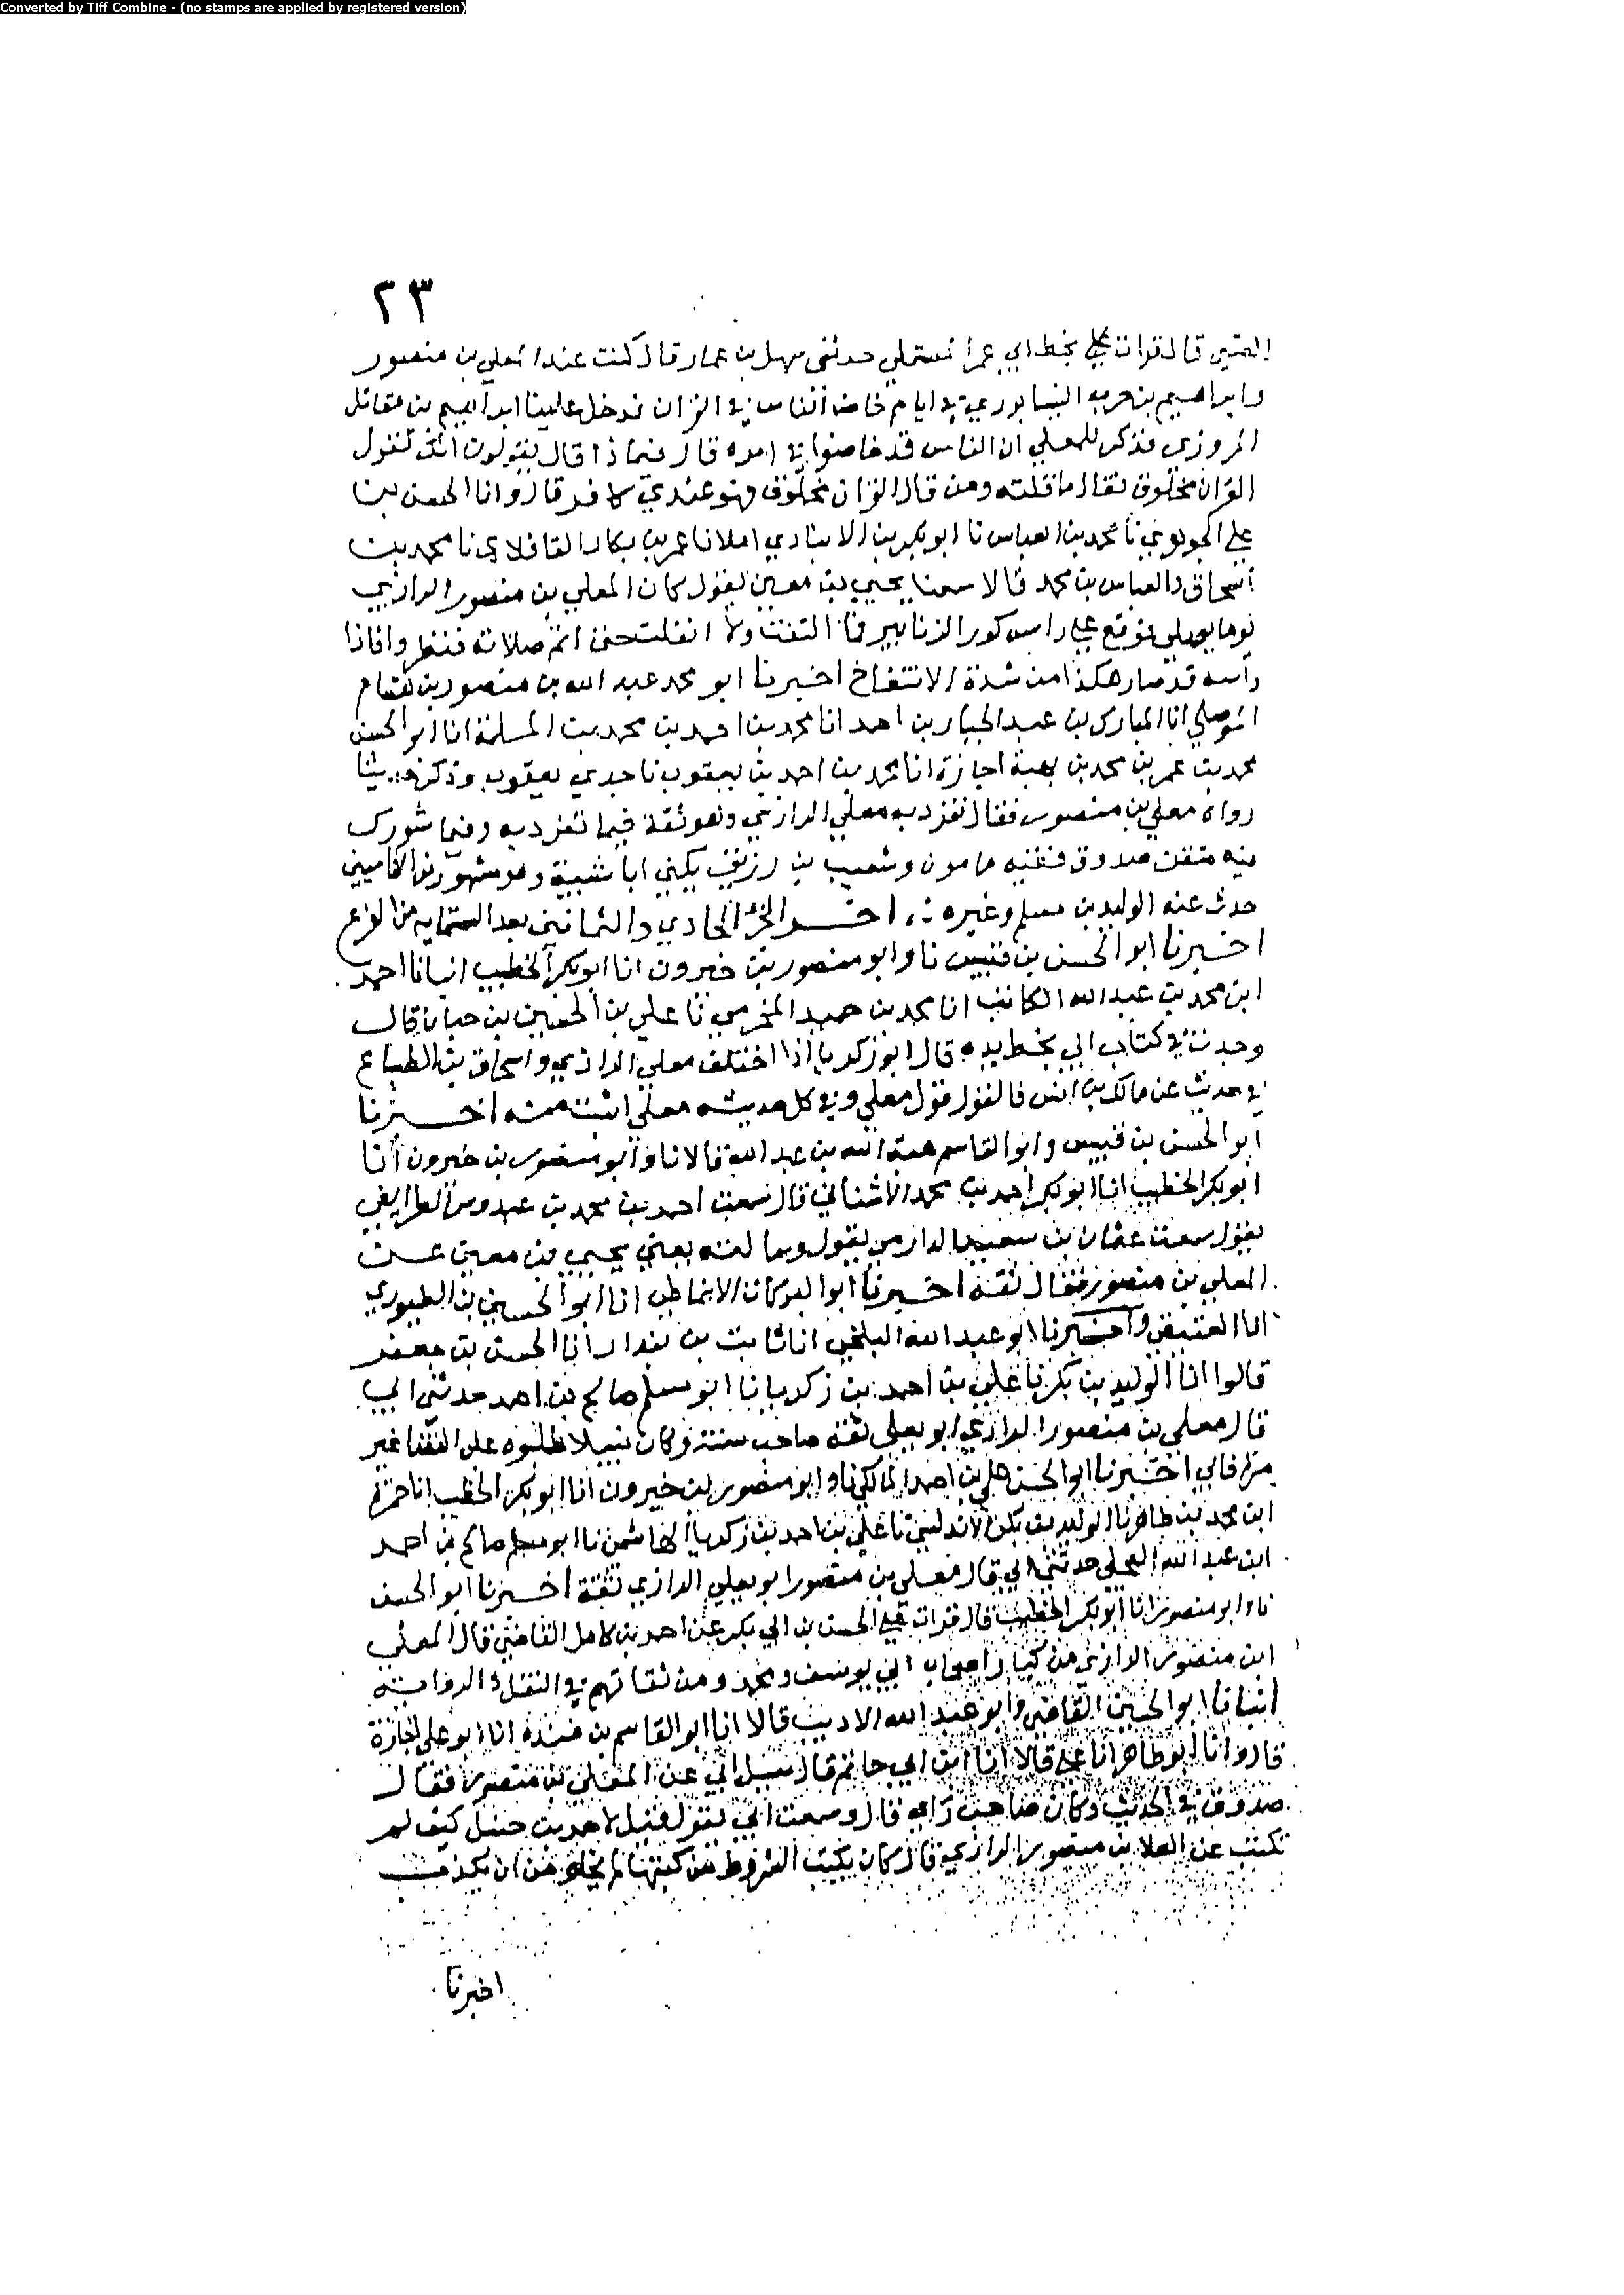 Converted by Tiff Combine - (no stamps are applied by registered version)
٢٣
قال قرات بخط ابي عمر المستملي حدثني سهل بن عمار قال كنت عند المعلي بن منصور
وابراهيم بن حرب النيسابوري في ايام خاض الناس في القران فدخل علينا ابراهيم بن مقاتل
المروزي فذكر للمعلي ان الناس قد خاضوا في امره قال فماذا قال يقولون انك تقول
القران مخلوق فقال ما قلته ومن قال القران مخلوق فهو عندي كافر قال وانا الحسن بن
علي الجوهري نا محمد بن العباس نا ابو بكر بن الانباري املانا عمر بن بكار القافلاي نا محمد بن
اسحاق والعباس بن محمد قالا سمعنا يحيي بن معين يقول كان المعلي بن منصور الرازي
يوما يصلي فوقع علي راسه كور الزنابير فما التفت ولا انفلت حتى اتم صلاته فنظروا فاذا
رأسه قد صار هكذا من شدة الانتفاخ اخبرنا ابو محمد عبد الله بن منصور بن
الموصلي انا المبارك بن عبد الجبار بن احمد انا محمد بن احمد بن محمد بن المسلمة انا ابو الحسن
محمد بن عمر بن محمد بن بهتة اجازة انا محمد بن احمد بن يعقوب نا جدي يعقوب وذكر
رواه معلي بن منصور فقال تفرد به معلي الرازي وهو ثقة فيما تفرد به وفيما شورك
فيه متقن صدوق فقيه مامون وشعيب بن رزيق يكني ابا شيبة وهو مشهور
حدث عنه الوليد بن مسلم وغيره اخر الجزء الحادي والثمانين بعد الستمايه من الفرع
اخبرنا ابو الحسن بن قبيس نا وابو منصور بن خيرون انا ابو بكر الخطيب انبانا احمد
ابن محمد بن عبد الله الكاتب انا محمد بن حميد المخرمي نا علي بن الحسين بن حبان قال
وجدت في كتاب ابي بخط يده قال ابو زكريا اذا اختلف معلي الرازي واسحاق بن الطباع
في حديث عن مالك بن انس فالقول قول معلي وفي كل حديثه معلي اثبت منه اخبرنا
ابو الحسن بن قبيس وابو القاسم هبة الله بن عبد الله قالا نا وابو منصور بن خيرون انا
ابو بكر الخطيب انا ابو بكر احمد بن محمد الاشناني قال سمعت احمد بن محمد بن عبدوس الطرايفي
يقول سمعت عثمان بن سعيد الدارمي يقول وسالته يعني يحيي بن معين عن
المعلي بن منصور فقال ثقة اخبرنا ابو البركات الانماطي انا ابو الحسين بن الطيوري
انا العتيقي واخبرنا ابو عبد الله البلخي انا ثابت بن بندار انا الحسين بن جعفر
قالوا انا الوليد بن بكر نا علي بن احمد بن زكريا نا ابو مسلم صالح بن احمد حدثني ابي
قال معلي بن منصور الرازي ابو يعلي ثقة صاحب سنة وكان نبيلا طلبوه علي القضا غير
مرة فابي اخبرنا ابو الحسن علي بن احمد المالكي نا وابو منصور بن خيرون انا ابو بكر الخطيب انا حمزة
ابن محمد بن طاهر نا الوليد بن بكر الاندلسي نا علي بن احمد بن زكريا الهاشمي نا ابو مسلم صالح بن احمد
ابن عبد الله العجلي حدثني ابي قال معلي بن منصور ابو يعلي الرازي ثقة اخبرنا ابو الحسن
نا وابو منصور انا ابو بكر الخطيب قال قرات علي الحسن بن ابي بكر عن احمد بن كامل القاضي قال المعلي
ابن منصور الرازي من كبار اصحاب ابي يوسف ومحمد ومن ثقاتهم في النقل والرواية
انبانا ابو الحسين القاضي وابو عبد الله الاديب قالا انا ابو القاسم بن مندة انا ابو علي اجازة
قال وانا ابو طاهر انا علي قالا انا ابن ابي حاتم قال سيل ابي عن المعلي بن منصور فقال
صدوق في الحديث وكان صاحب راي قال وسمعت ابي يقول قيل لاحمد بن حنبل كيف لم
تكتب عن العلا بن منصور الرازي قال كان يكتب الشروط من كتبها لم يخل من ان يكذب
اخبرنا